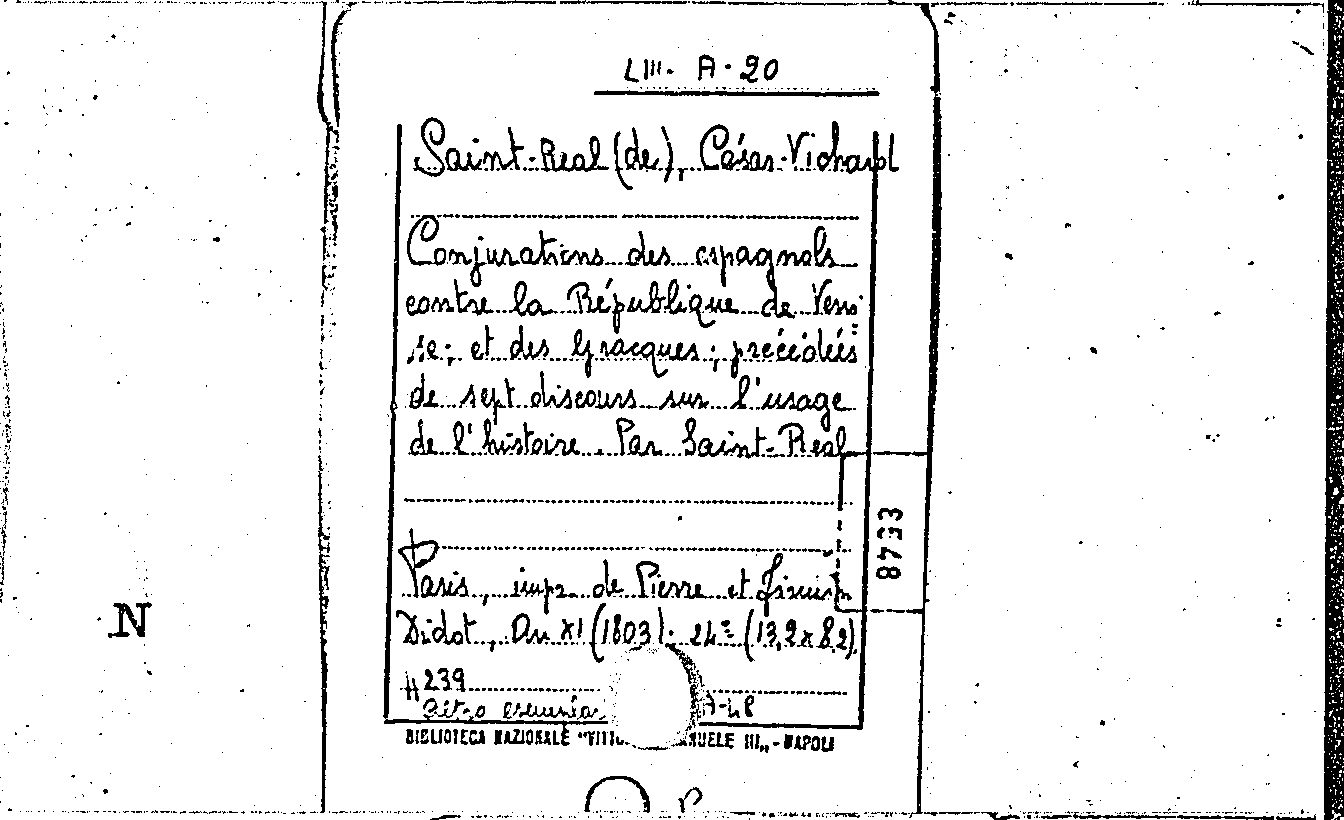 LIII. A. 20
Saint-Real (de), César-Vichard
Conjurations des espagnols
contre la République de Veni-
se; et des Gracques; précédées
de sept discours sur l'usage
de l'histoire. Par Saint-Real
Paris, impr. de Pierre et Firmin
Didot, An XI (1803). 24º (13,2 x 8,2)
239
Altro
A-48
BIBLIOTECA NAZIONALE "VITTO MANUELE III„ - NAPOLI
8733
N